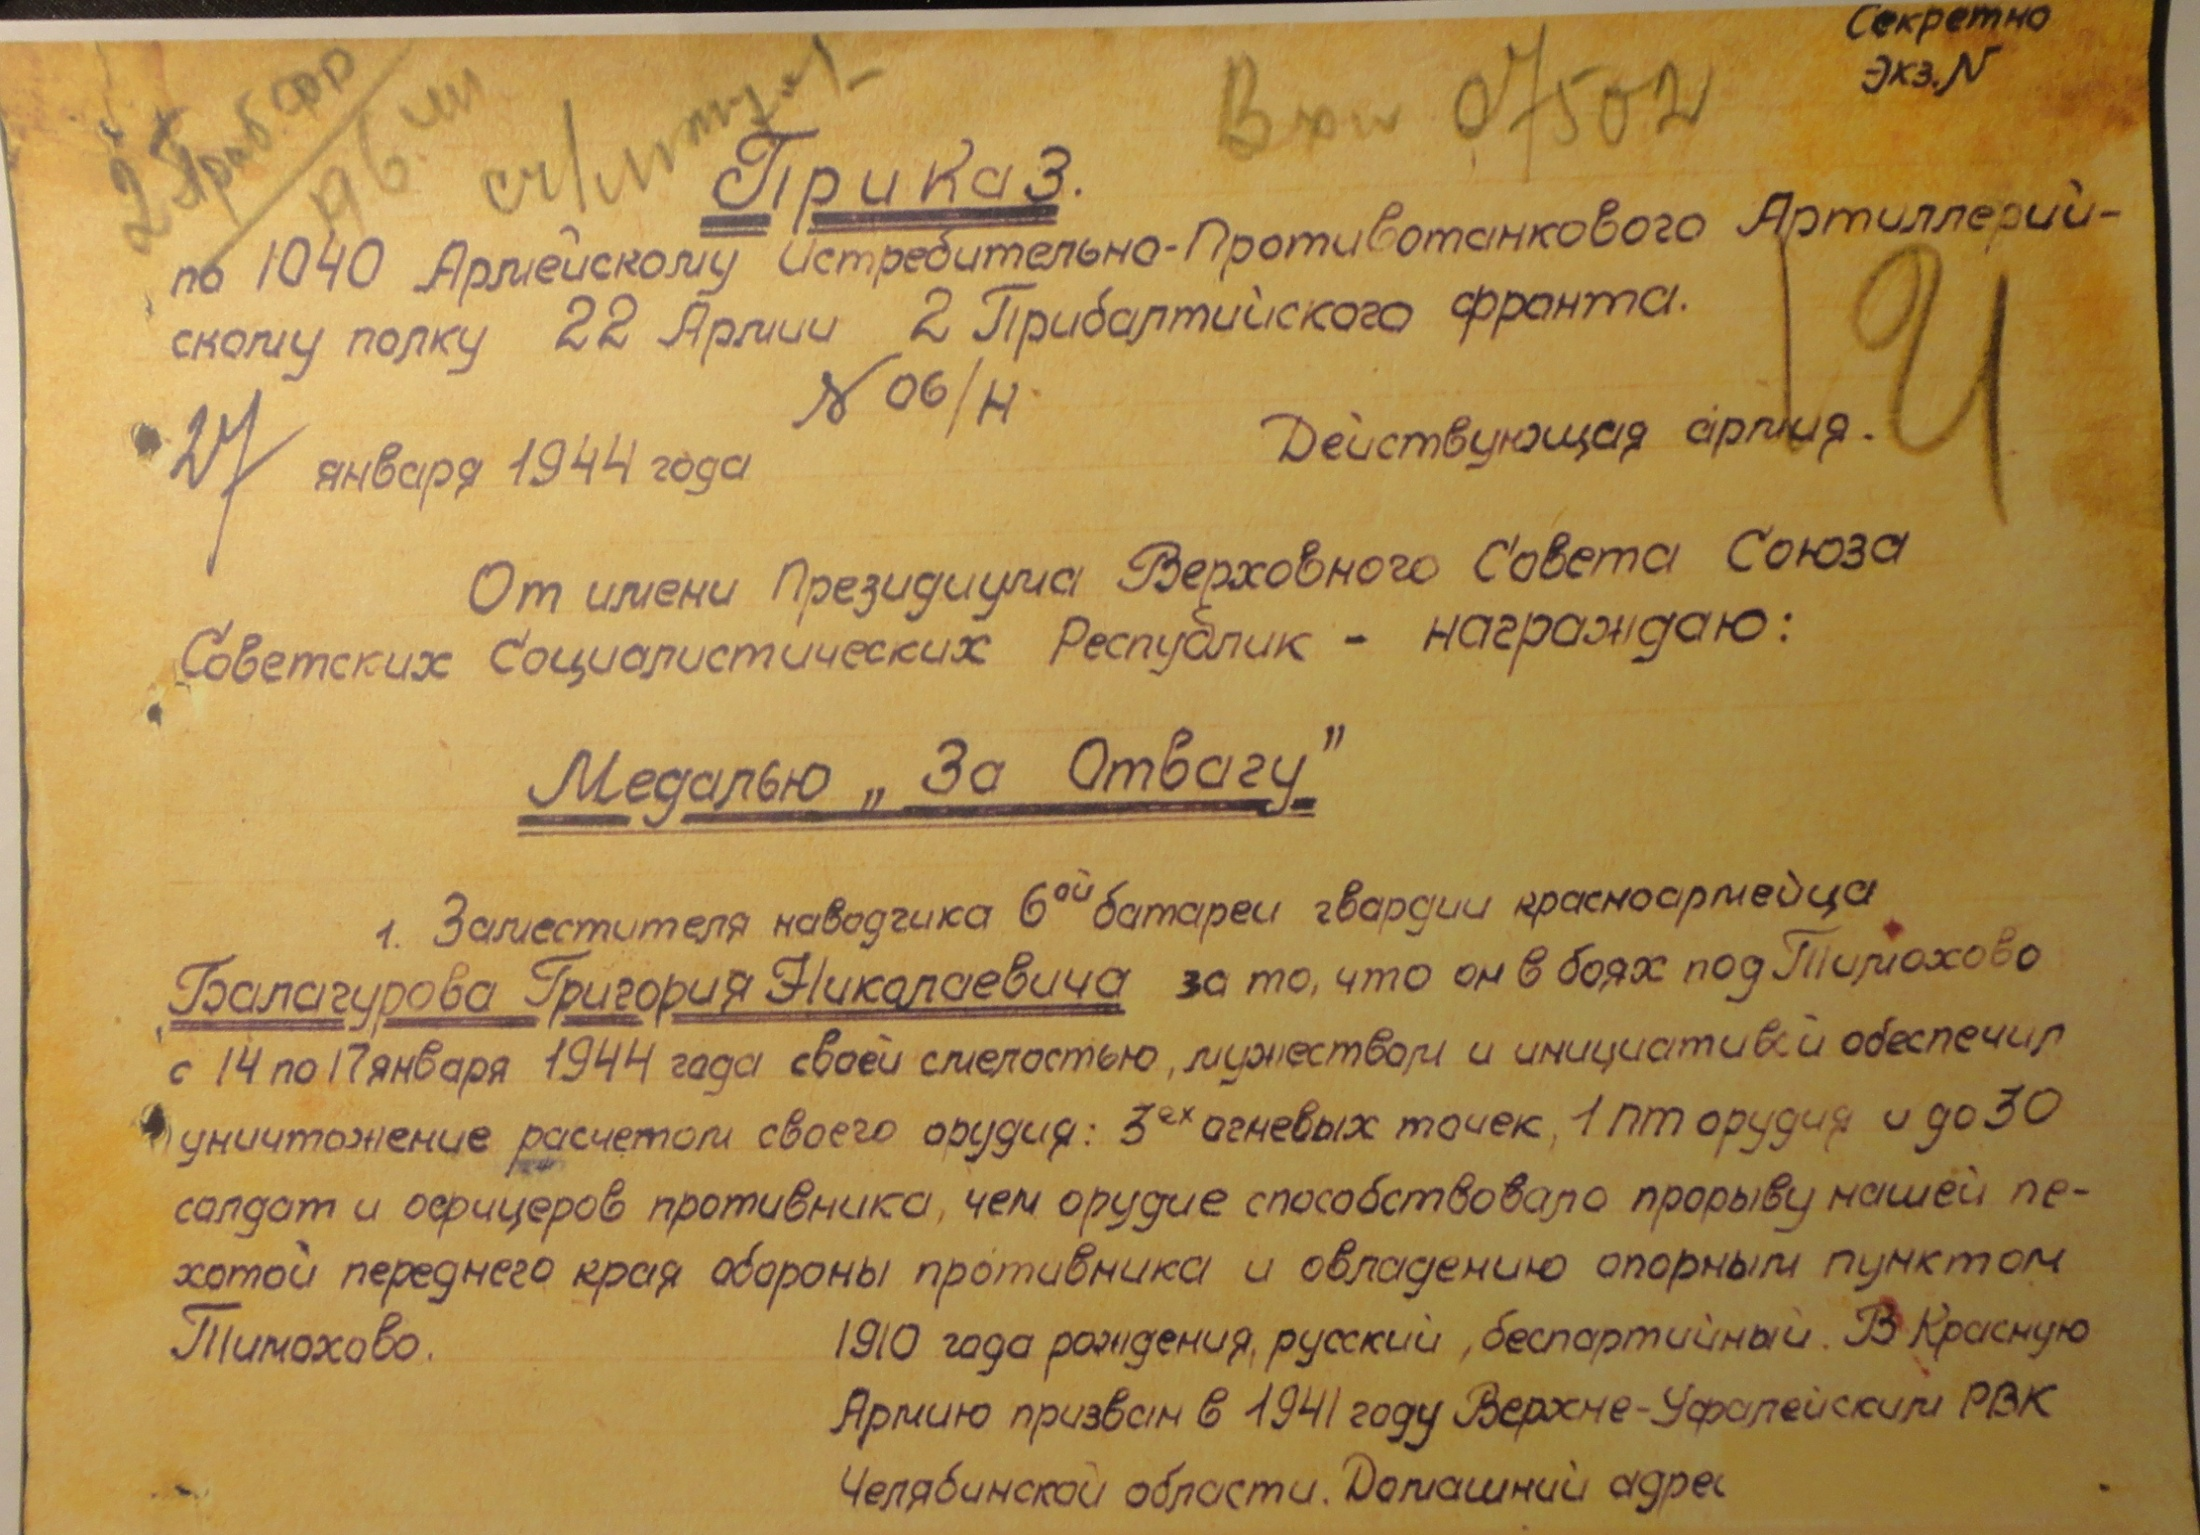 Секретно
Экз. N
2 Приб ФР
Вхи 07502
Приказ.
по 1040 Армейскому Истребительно-Противотанкового Артиллерий-
скому полку 22 Армии 2 Прибалтийского фронта.
N 06/н
27 января 1944 года Действующая армия.
От имени Президиума Верховного Совета Союза
Советских Социалистических Республик - награждаю:
Медалью „За Отвагу"
1. Заместителя наводчика 6ой батареи гвардии красноармейца
Балагурова Григория Николаевича за то, что он в боях под Тимохово
с 14 по 17 января 1944 года своей смелостью, мужеством и инициативой обеспечил
уничтожение расчетом своего орудия: 3ех огневых точек, 1 ПТ орудия и до 30
солдат и офицеров противника, чем орудие способствовало прорыву нашей пе-
хотой переднего края обороны противника и овладению опорным пунктом
Тимохово. 1910 года рождения, русский, беспартийный. В Красную
Армию призван в 1941 году Верхне-Уфалейским РВК
Челябинской области. Домашний адрес